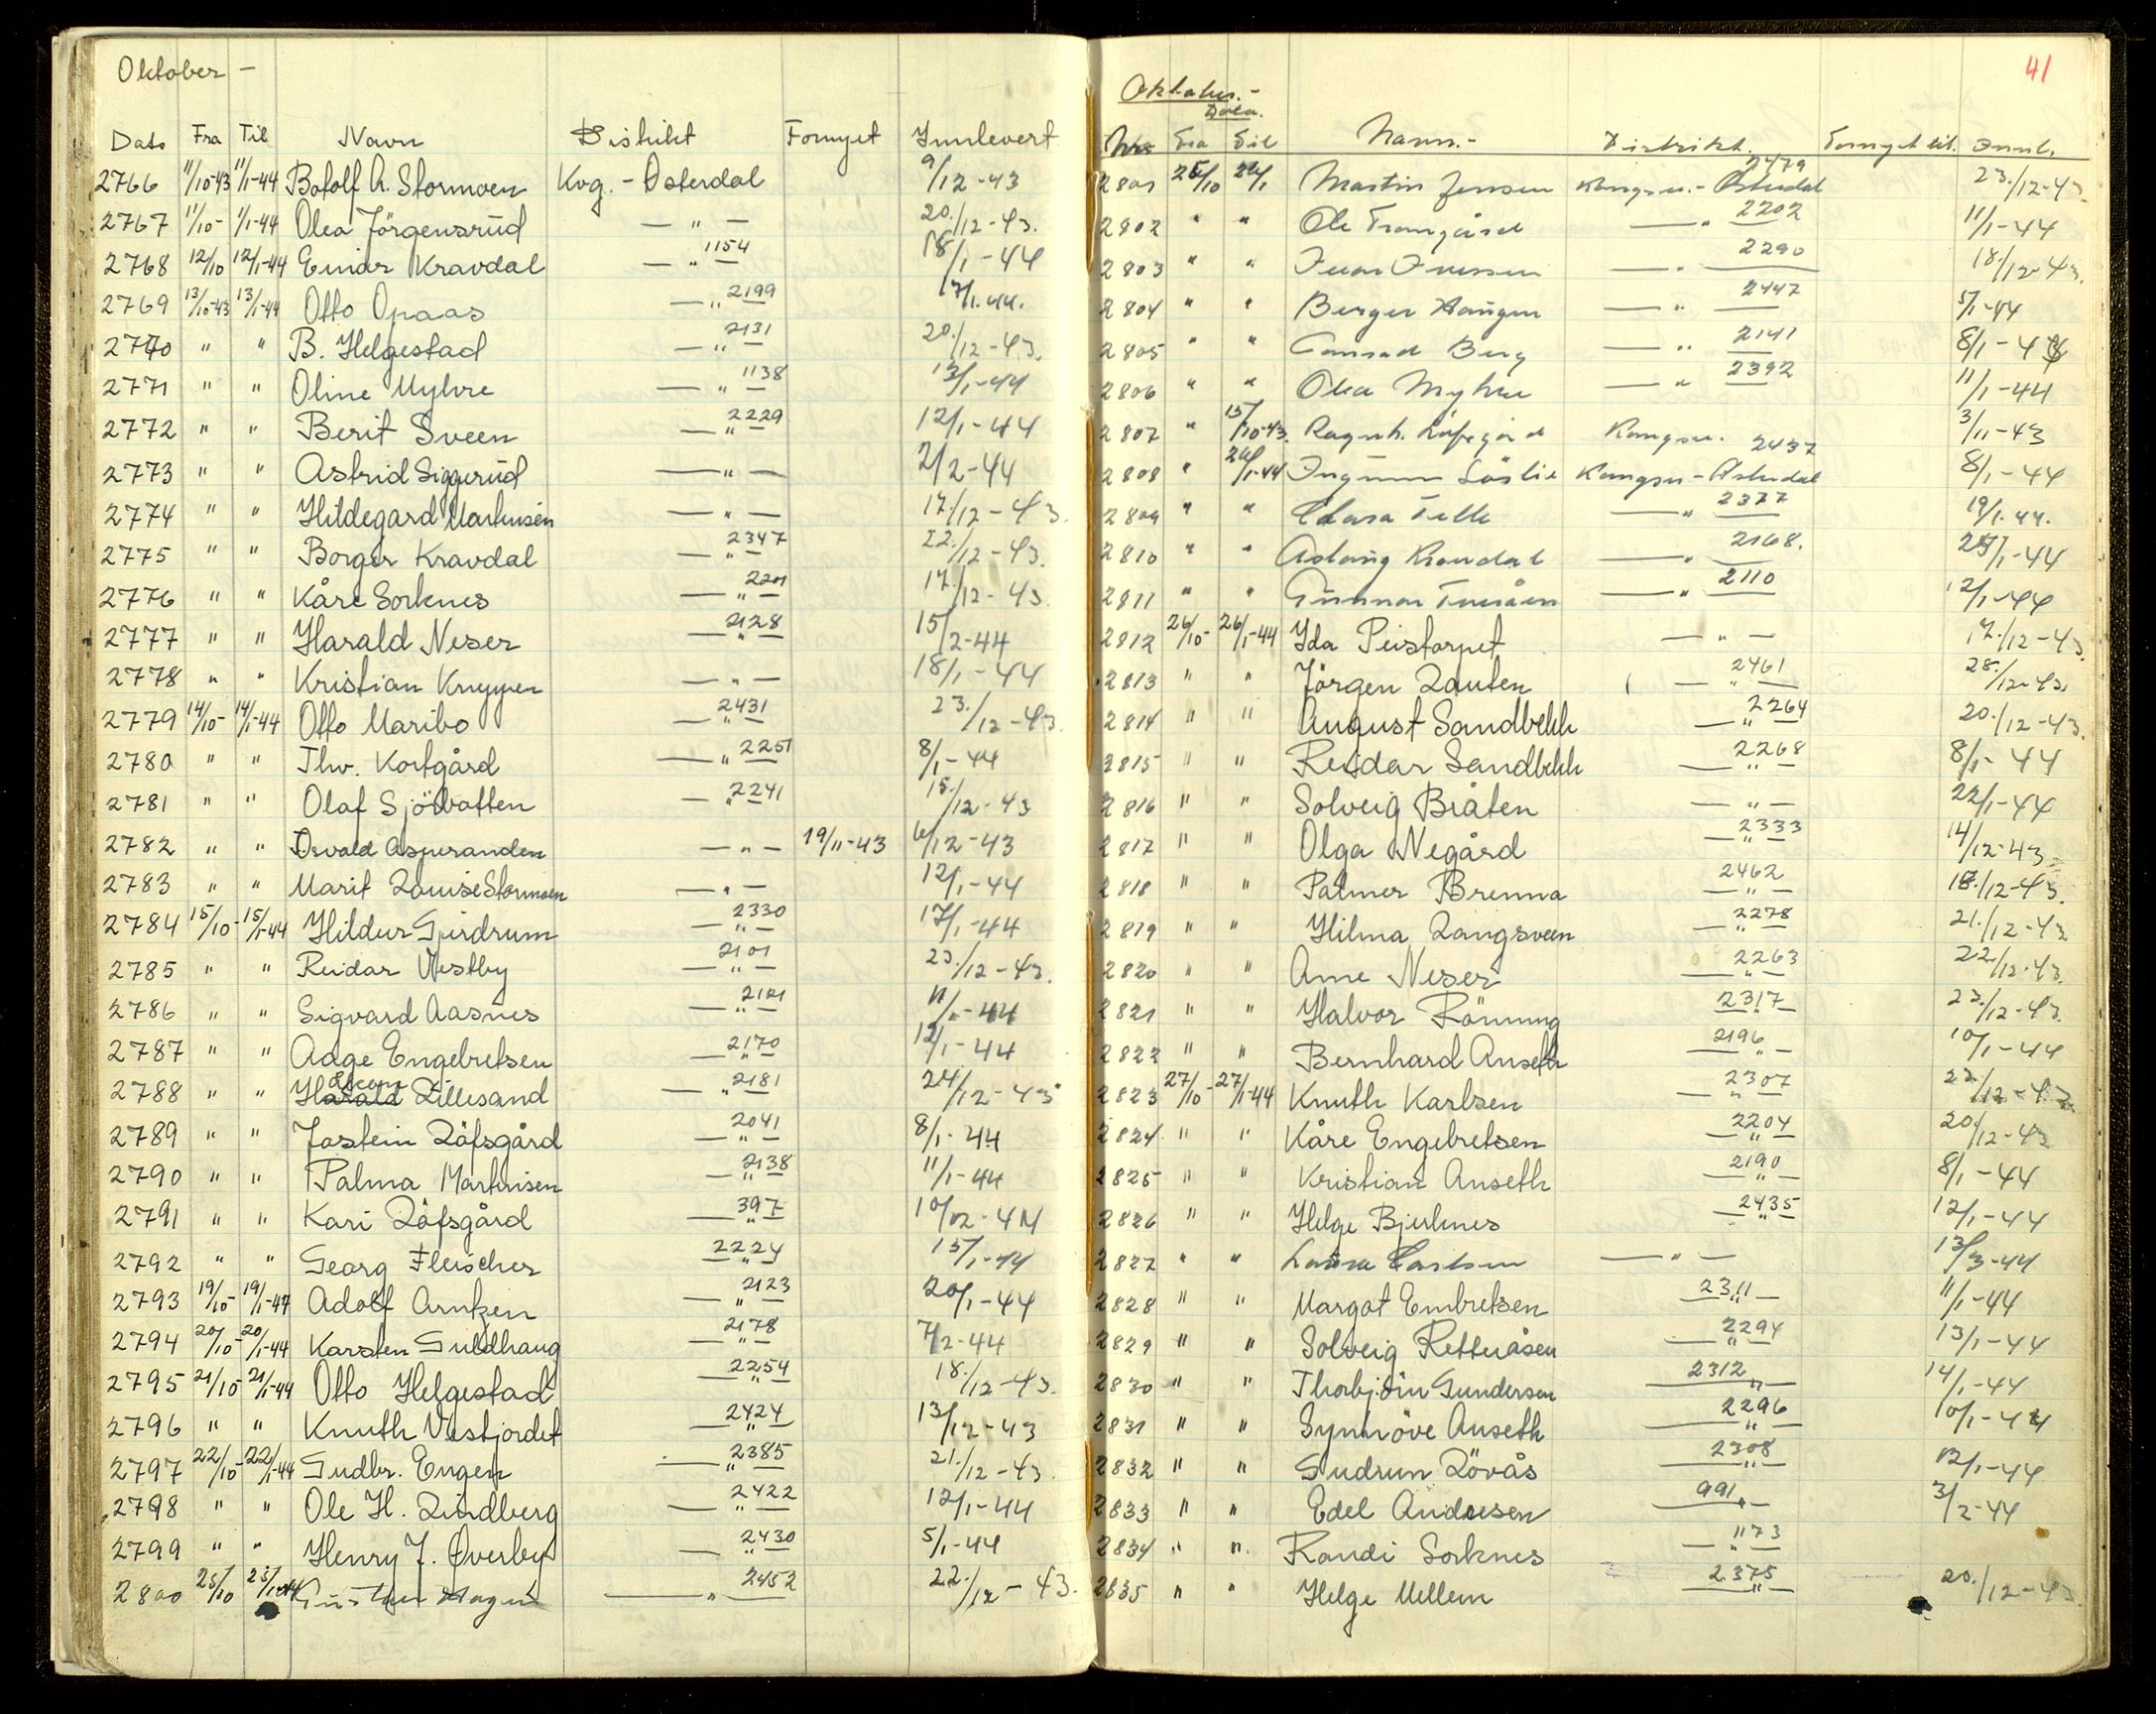 Oktober -
Dato Fra Til Navn Distrikt Fornyet Innlevert
2766 11/10-43 11/1-44 Botolf A. Stormoen Kvg. - Østerdal 9/12-43
2767 11/10- 1/1-44 Olea Jörgensrud — " — 20./12-43.
2768 12/10 12/1-44 Einar Kravdal — " — 1154 18/1-44
2769 13/10-43 13/1-44 Otto Opaas — " — 2199 17/1.44.
2770 " " B. Helgestad — " — 2131 20./12-43.
2771 " " Oline Myhre — " — 1138 13/1-44
2772 " " Berit Sveen — " — 2229 12/1-44
2773 " " Astrid Siggerud — " — 2/2-44
2774 " " Hildegard Martinsen — " — 17/12-43.
2775 " " Borger Kravdal — " — 2347 22./12-43.
2776 " " Kåre Sorknes — " — 2201 17./12-43.
2777 " " Harald Neser — " — 2128 15/2-44
2778 " " Kristian Knyppen — " — 18/1-44
2779 14/10- 14/1-44 Otto Maribo — " — 2431 23./12-43.
2780 " " Thv. Kortgård — " — 2251 8/1-44
2781 " " Olaf Sjöbatten — " — 2241 15./12-43
2782 " " Osvald Asperanden — " — 19/11-43 6/12-43
2783 " " Marit Louise Stormoen — " — 12/1-44
2784 15/10- 15/1-44 Hildur Gjerdrum — " — 2330 17/1-44
2785 " " Reidar Vestby — " — 2101 23./12-43.
2786 " " Sigvard Aasnes — " — 2121 11/1-44
2787 " " Aage Engebretsen — " — 2170 12/1-44
2788 " " Harald Lillesand — " — 2181 24/12-43
2789 " " Jostein Löfsgård — " — 2041 8/1-44
2790 " " Palma Martinsen — " — 2138 11/1-44
2791 " " Kari Löfsgård — " — 397 10/12-44
2792 " " Georg Fleischer — " — 2224 15/1-44
2793 19/10- 19/1-44 Adolf Arntzen — " — 2123 20/1-44
2794 20/10- 20/1-44 Karsten Guldhaug — " — 2178 7/2-44
2795 21/10- 21/1-44 Otto Helgestad — " — 2254 18./12-43.
2796 " " Knuth Vestjordet — " — 2424 13/12-43
2797 22/10- 22/1-44 Gudbr. Engen — " — 2385 21./12-43.
2798 " " Ole H. Lindberg — " — 2422 12/1-44
2799 " " Henry J. Øverby — " — 2430 5/1-44
2800 25/10 25/1-44 Hagen — " — 2452 22./12-43.
41
Oktober.-
Dato.
Nr. Fra Til Navn.- Distrikt. Fornyet til. Innl.
2801 25/10 24/1 Martin Jensen Kongsv.- Østerdal 2479 23./12-43.
2802 " " Ole Tromgård — " — 2202 11/1-44
2803 " " Ivar Iversen — " — 2290 18/12-43.
2804 " " Berger Haugen — " — 2447 5/1-44
2805 " " Conrad Berg — " — 2141 8/1-44
2806 " " Olea Myhre — " — 2392 11/1-44
2807 " 15/10-43. Ragnh. Löfsgård Kongsv. 3/11-43
2808 " 24/1-44 Ingunn Låslie Kongsv - Østerdal 2437 8/1-44
2809 " " Clara Telle — " — 2377 19/1.44.
2810 " " Aslaug Kravdal — " — 2168. 27/1-44
2811 " " Gunnar Tveråen — " — 2110 12/1-44
2812 26/10- 26/1-44 Ida Peistorpet — " — 17./12-43.
2813 " " Jörgen Lauten — " — 2461 28./12-43.
2814 " " August Sandbekk — " — 2264 20./12-43.
2815 " " Reidar Sandbekk — " — 2268 8/1-44
2816 " " Solveig Bråten — " — 22/1-44
2817 " " Olga Negård — " — 2333 14/12-43
2818 " " Palmer Brenna — " — 2462 18./12-43.
2819 " " Hilma Langsveen — " — 2278 21./12-43
2820 " " Arne Neser — " — 2263 22/12.43.
2821 " " Halvor Rönning — " — 2317 23./12-43.
2822 " " Bernhard Anseth — " — 2196 10/1-44
2823 27/10- 27/1-44 Knuth Karlsen — " — 2307 22/12-43
2824 " " Kåre Engebretsen — " — 2204 20/12-43
2825 " " Kristian Anseth — " — 2190 8/1-44
2826 " " Helge Bjerknes — " — 2435 12/1-44
2827 " " Laura Carlsen — " — 13/3-44
2828 " " Margot Embretsen — " — 2311 11/1-44
2829 " " Solveig Rettuåsen — " — 2294 13/1-44
2830 " " Thorbjörn Gundersen — " — 2312 14/1-44
2831 " " Synnöve Anseth — " — 2296 10/1-44
2832 " " Gudrun Lövås — " — 2308 12/1-44
2833 " " Edel Andresen — " — 991 3/2-44
2834 " " Randi Sorknes — " — 1173
2835 " " Helge Mellem — " — 2375 20./12-43.